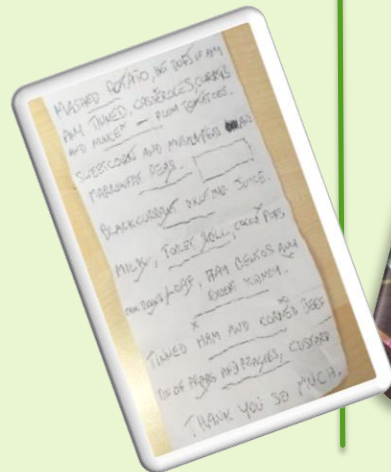 MASHED POTATO, IF ANY
ANY TINNED, CASSEROLES, CURRIES
AND MINCE – PLUM TOMATOES.
SWEETCORN AND MUSHY PEAS
MARROWFAT PEAS.
BLACKCURRANT JUICE.
MILK, TOILET ROLL, COCO POPS
ONE BROWN LOAF, FRAY BENTOS ANY
EXCEPT KIDNEY.
TINNED HAM AND CORNED BEEF
TIN OF PEARS AND PEACHES, CUSTARD
THANK YOU SO MUCH.